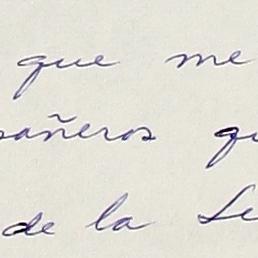 que me
pañeros qu
de la Se